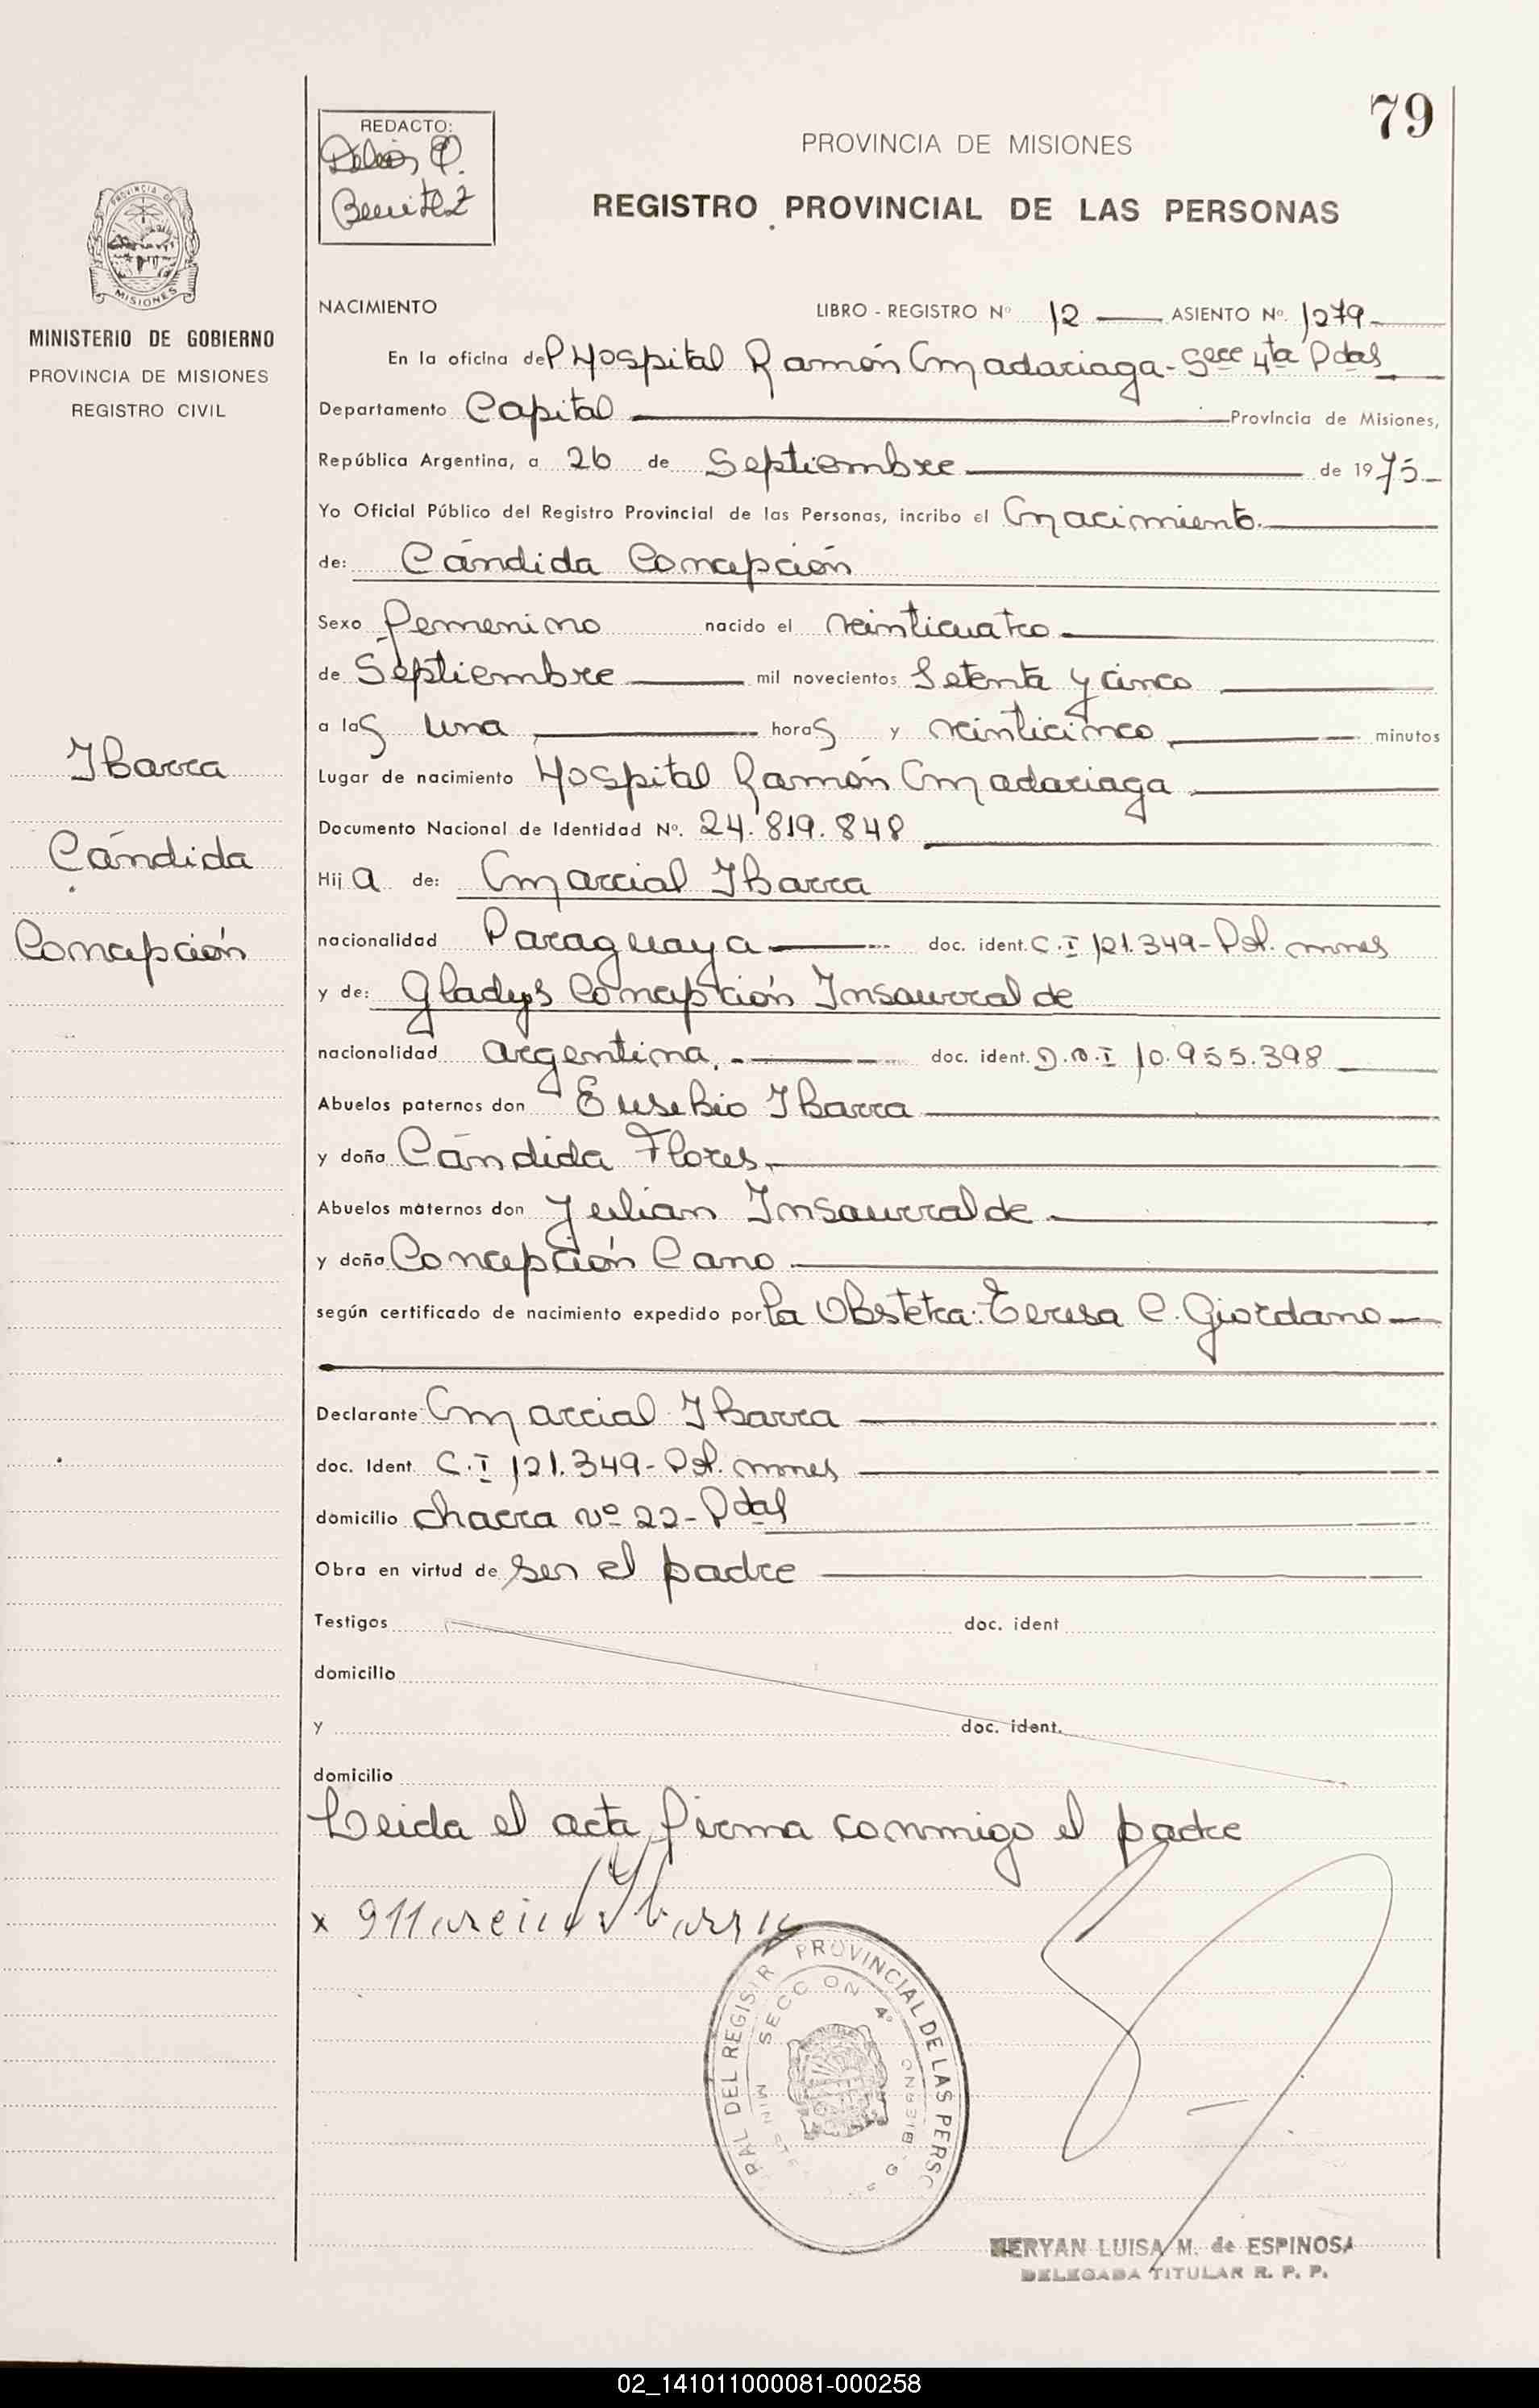 79
REDACTO:
Benitez
PROVINCIA DE MISIONES
REGISTRO PROVINCIAL DE LAS PERSONAS
PROVINCIA DE
MISIONES
MINISTERIO DE GOBIERNO
PROVINCIA DE MISIONES
REGISTRO CIVIL
Ibarra
Cándida
Concepción
NACIMIENTO LIBRO - REGISTRO Nº 12 ASIENTO Nº. 1279
En la oficina del Hospital Ramón Madariaga - Secc 4ta Pdas
Departamento Capital Provincia de Misiones,
República Argentina, a 26 de Septiembre de 1975
Yo Oficial Público del Registro Provincial de las Personas, incribo el Nacimiento
de: Cándida Concepción
Sexo femenino nacido el veinticuatro
de Septiembre mil novecientos Setenta y cinco
a las una horas y veinticinco minutos
Lugar de nacimiento Hospital Ramón Madariaga
Documento Nacional de Identidad Nº. 24.819.848
Hija de: Marcial Ibarra
nacionalidad Paraguaya doc. ident. C.I 121.349 - Pol. mnes
y de: Gladys Concepción Insaurralde
nacionalidad argentina. doc. ident. D.N.I 10.955.398
Abuelos paternos don Eusebio Ibarra
y doña Cándida Flores
Abuelos maternos don Julian Insaurralde
y doña Concepción Cano
según certificado de nacimiento expedido por la Obstetra: Teresa C. Giordano
Declarante Marcial Ibarra
doc. Ident. C.I 121.349 - Pol. mnes
domicilio chacra Nº 22 - Pdas
Obra en virtud de ser el padre
Testigos doc. ident
domicilio
y doc. ident.
domicilio
Leida el acta, firma conmigo el padre
x Marcial Ibarra
RAL DEL REGISTR PROVINCIAL DE LAS PERSO
SECCION 4º
MERYAN LUISA M. de ESPINOSA
DELEGADA TITULAR R. P. P.
02_141011000081-000258